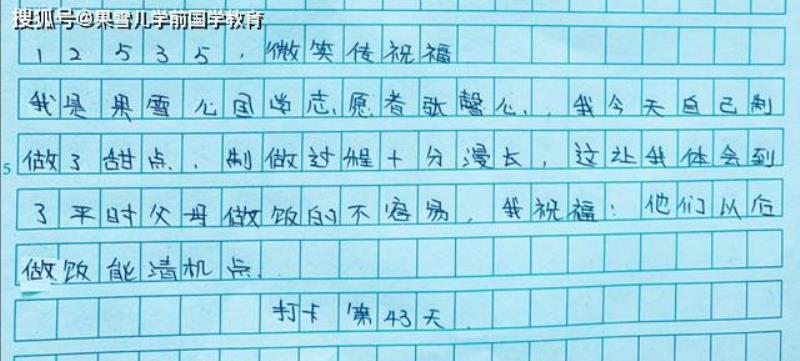 搜狐号@果雪儿学前国学教育
12535,微笑传祝福
我是果雪儿国学志愿者张馨心,我今天自己制
5
做了甜点,制做过程十分漫长,这让我体会到
了平时父母做饭的不容易,我祝福:他们以后
做饭能清机点.
打卡第43天.